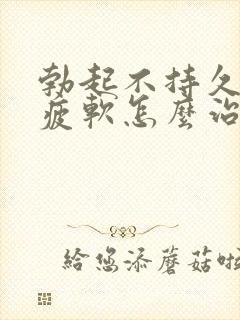 勃起不持久
疲軟怎麼治
給您添蘑菇啦